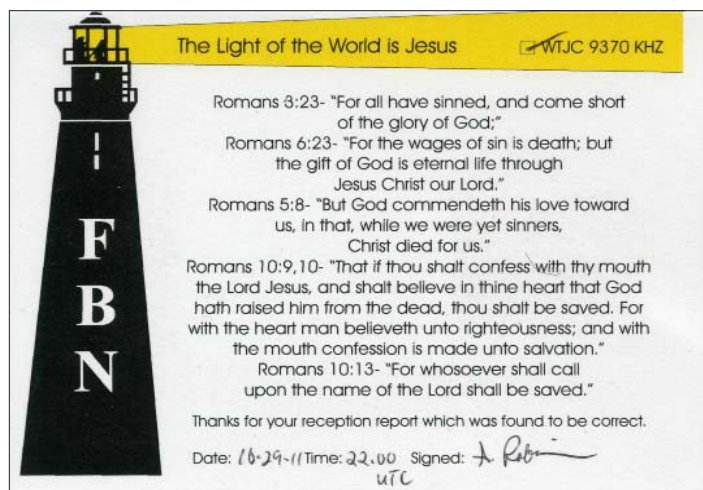 The Light of the World is Jesus
WTJC 9370 KHZ
Romans 3:23- “For all have sinned, and come short
of the glory of God;”
Romans 6:23- “For the wages of sin is death; but
the gift of God is eternal life through
Jesus Christ our Lord.”
Romans 5:8- “But God commendeth his love toward
us, in that, while we were yet sinners,
Christ died for us.”
Romans 10:9,10- “That if thou shalt confess with thy mouth
the Lord Jesus, and shalt believe in thine heart that God
hath raised him from the dead, thou shalt be saved. For
with the heart man believeth unto righteousness; and with
the mouth confession is made unto salvation.”
Romans 10:13- “For whosoever shall call
upon the name of the Lord shall be saved.”
Thanks for your reception report which was found to be correct.
Date: 10-29-11 Time: 22.00 Signed:
UTC
F
B
N